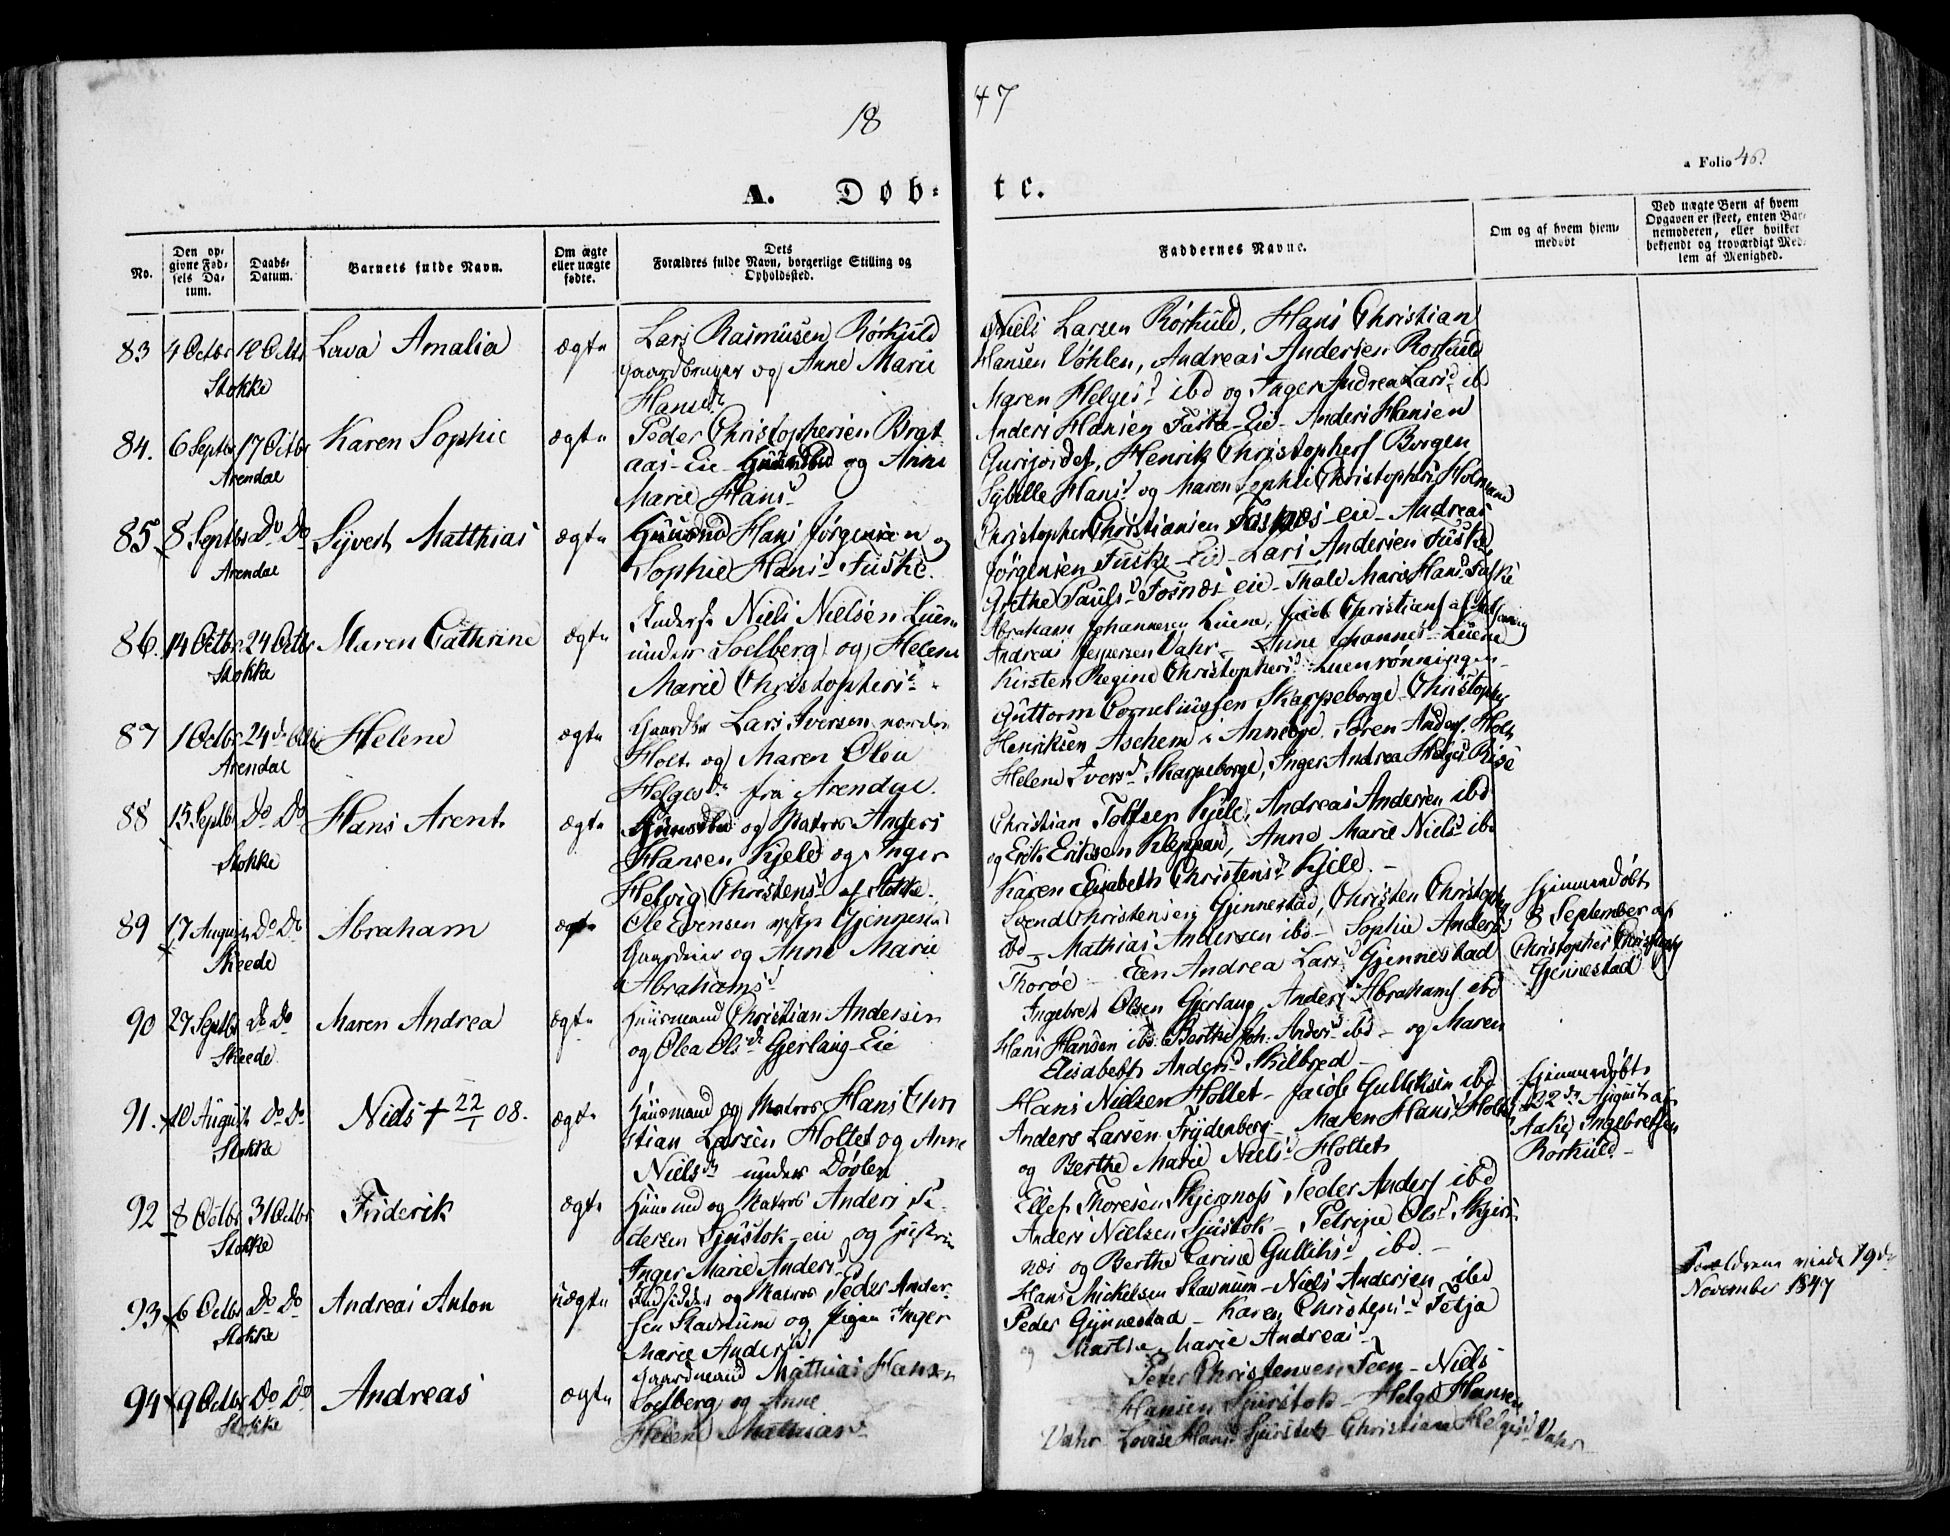 18 47
a Folio 46.
A. Døb- te.
No.
Den op-
givne Fød-
sels Da-
tum.
Daabs-
Datum.
Barnets fulde Navn.
Om ægte
eller uægte
fødte.
Dets
Forældres fulde Navn, borgerlige Stilling og
Opholdssted.
Faddernes Navne.
Om og af hvem hjem-
medøbt
Ved uægte Børn af hvem
Opgaven er skeet, enten Bar-
nemoderen, eller hvilket
bekjendt og troværdigt Med-
lem af Menighed.
83 4 Octbr Lova Amalia ægte
Stokke
Lars Rasmusen Rørkuld
Gaardbruger og Anne Marie
Hansdr
Niels Larsen Rørkuld, Hans Christian
Hansen Vøhlen, Andreas Andersen Rorkuld
Maren Helgesd ibd og Inger Andrea Larsd ib
84. 6 Septbr 17 Octbr Karen Sophie ægte
Arendal
Peder Christophersen Brat-
aas-Eie og Anne
Marie Hansd
Anders Hansen Eie - Anders Hansen
Henrik Christophers Borgen
Sybille Hansd og Maren Sophie Christophers
85 8 Septbr Do Do Syvert Matthias ægte
Arendal
Huusmd Hans Jørgensen og
Sophie Hansd Fuske.
Christopher Christiansen eie - Andreas
Jørgensen Fuske-Eie - Lars Andersen Fuske
Grethe Paulsd Fosnæs eie - Thale Marie Hansd
86. 14 Octbr 24 Octbr Maren Cathrine ægte
Stokke
Niels Nielsen
under Soelberg og Helene
Marie Christophersd
Abraham Johannesen Christians
Andreas Jespersen Vahr - Anne Johannesd
Kirsten Regine Christophersd
87 1 Octbr 24de Octbr Helene ægte
Arendal
Lars Iversen nordre
Holt og Maren Olea
Helgesdr fra Arendal.
Guttorm Corneliussen Skarpeborge - Christopher
Henriksen Aschem Søren Anders. Holt
Helene Iversd Skarpeborge, Inger Andrea Helgesd
88 15 Septbr Do Do Hans Arent ægte
Stokke
og Matros Anders
Hansen Kjele og Inger
Helvig Christensd af Stokke.
Christian Kjele, Andreas Andersen ibd
og Erik Eriksen Kleppan, Anne Marie Nielsd ibd
Karen Elisabeth Christensd Kjele. -
89 17 August Do Do Abraham ægte
Skeede
Ole Evensen vestre Gjennestad
og Anne Marie
Abrahamsd
Svend Christensen Gjennestad, Christen Christoph
ibd - Mathias Andersen ibd - Sophie Andersd
Thorøe - Een Andrea Larsd Gjennestad
hjemmedøbt
8 September af
Christopher
Gjennestad
90 27 Septbr Do Do Maren Andrea ægte
Skeede
Huusmand Christian Andersen
og Olea Olsdr Gjerlaug-Eie
Ingebret Olsen Gjerlaug, Anders Abrahams ibd
Hans Hansen ibd. Berthe Joh. Andersd ibd - og Maren
Elisabeth Andersd Skilbred -
91. 10 August Do Do Niels + 22/1 08. ægte
Stokke
Huusmand og Matros Hans Chri
stian Larsen Holtet og Anne
Nielsdr under Døvlen
Hans Nielsen Holtet - Jacob Gulliksen ibd
Anders Larsen Frydenberg - Maren Hansd Holtet
og Berthe Marie Nielsd Holtet
hjemmedøbt
22de August af
Aake Ingebretsen
Rorkuld -
92 8 Octbr 31 Octbr Friderik ægte
Stokke
Huusmd og Matros Anders Pe-
dersen Sjustok-eie og Hustru
Inger Marie Andersd
Ellef Thoresen Peder Anders ibd
Anders Nielsen Sjustok - Petrine Olsd
næs og Berthe Carine Gulliksd ibd. -
93 6 Octbr Do Do Andreas Anton uægte
Stokke
og Matros Peder Ander-
sen Skavnum og Pigen Inger
Marie Andersd
Hans Mickelsen Skavnum - Niels Andersen ibd
Peder Gjennestad - Karen Christensd
og Marthe Marie Andreasd
Forældrene viede 19de
November 1847
94 9 Octbr Do Do Andreas ægte
Stokke
Gaardmand Mathias Hansen
Soelberg og Anne
Helene Mathiasd
Peter Christensen Feen - Niels
Hansen Sjurstok - Helge Hansen
Vahr Lovise Hansd Sjurstok Christiane Helgesd Vahr